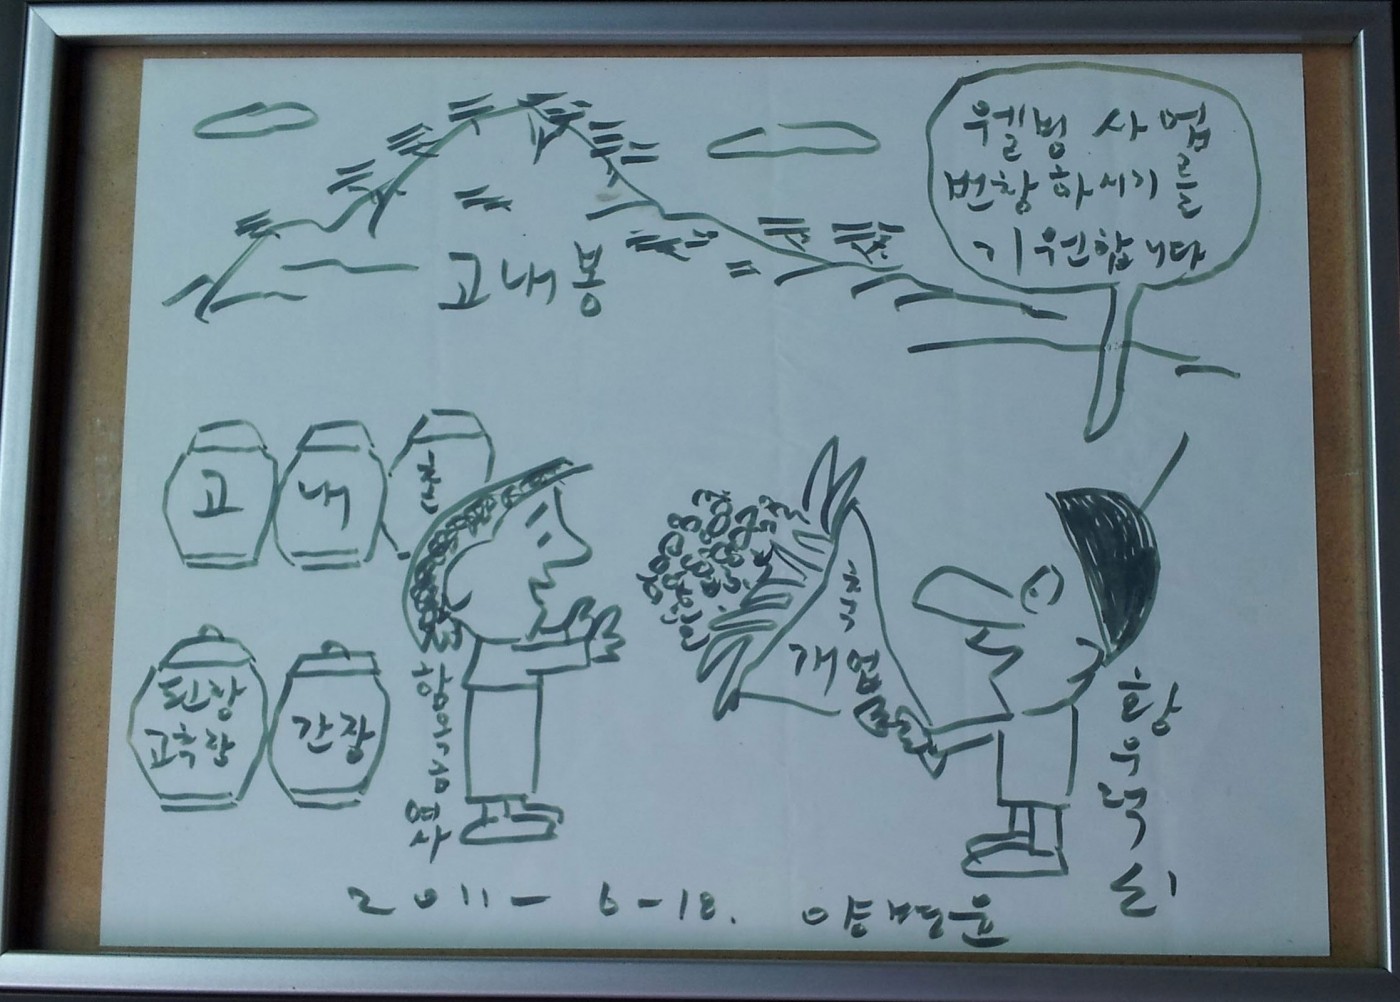 웰빙 사업
번창하시기를
기원합니다
고내봉
고 내 촌
축
개업
된장
고추장
간장
함옥금
여사
황우덕
2011-6-18. 양병윤